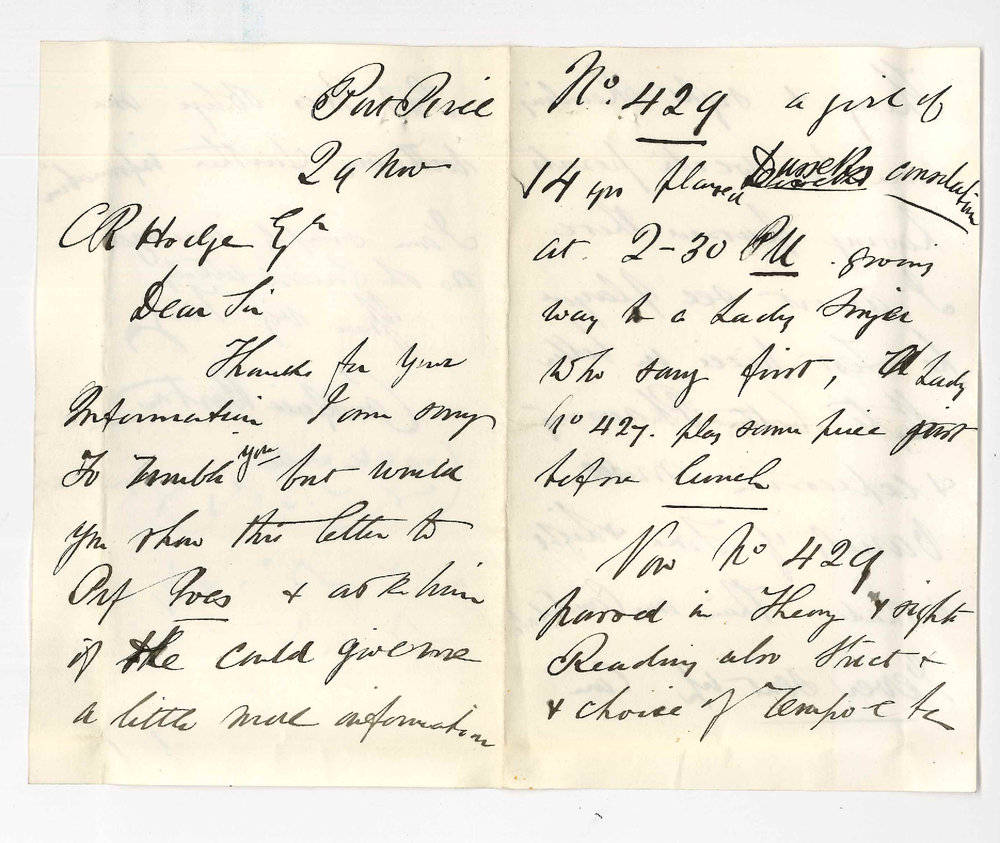 Port Pirie
29 Nov
C R Hodge Esqr
Dear Sir
Thanks for your
Information I am sorry
To trouble you but would
you show this letter to
Prf Ives & ask him
if he could give me
a little more information
No. 429 a girl of
14 yrs played Dusseks consolation
at 2-30 PM. giving
way to a Lady Singer
who sang first, A Lady
No 427. play same piece just
before lunch
Now No 429
passed in Theory & sight
Reading also Strict &
& choice of Tempo &c